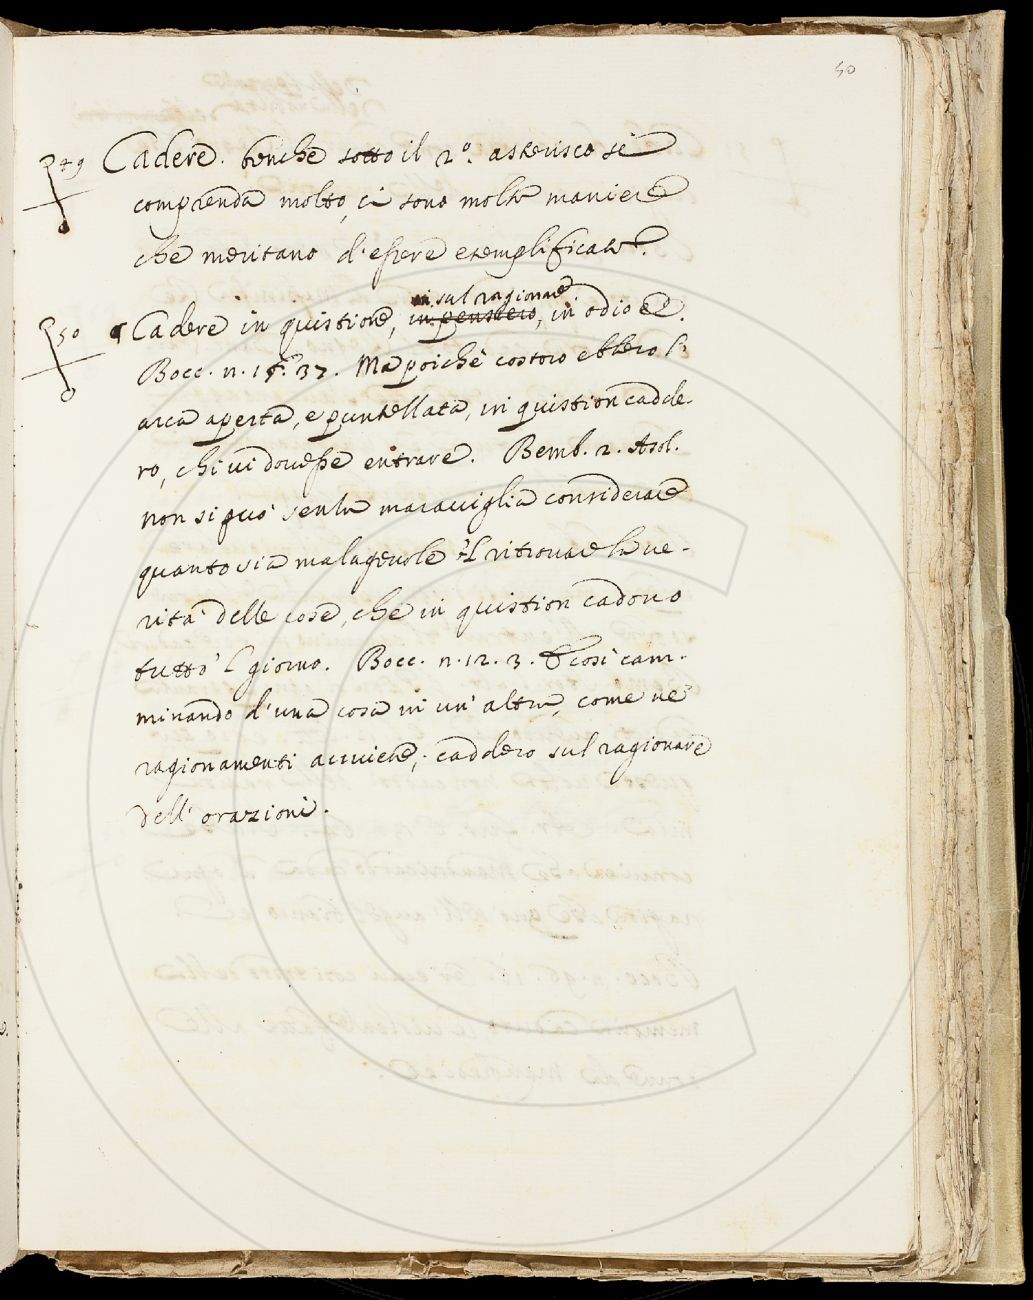 50
P49 Cadere. benchè sotto il 2º. asterisco si
comprenda molto, ci sono molte maniere
che meritano d'essere esemplificate.
in sul ragionare
P50 Cadere in quistione, in pensiero, in odio &c.
Bocc. n. 15. 37. Ma poichè costoro ebbero l'
arca aperta, e puntellata, in quistion cadde-
ro, chi vi dovesse entrare. Bemb. 2. Asol.
non si può senza maraviglia considerare
quanto sia malagevole 'l ritrovare la ve-
rità delle cose, che in quistion cadono
tutto 'l giorno. Bocc. n. 12. 3. E così cam-
minando d'una cosa in un' altra, come ne'
ragionamenti avviene, caddero sul ragionare
dell' orazioni.